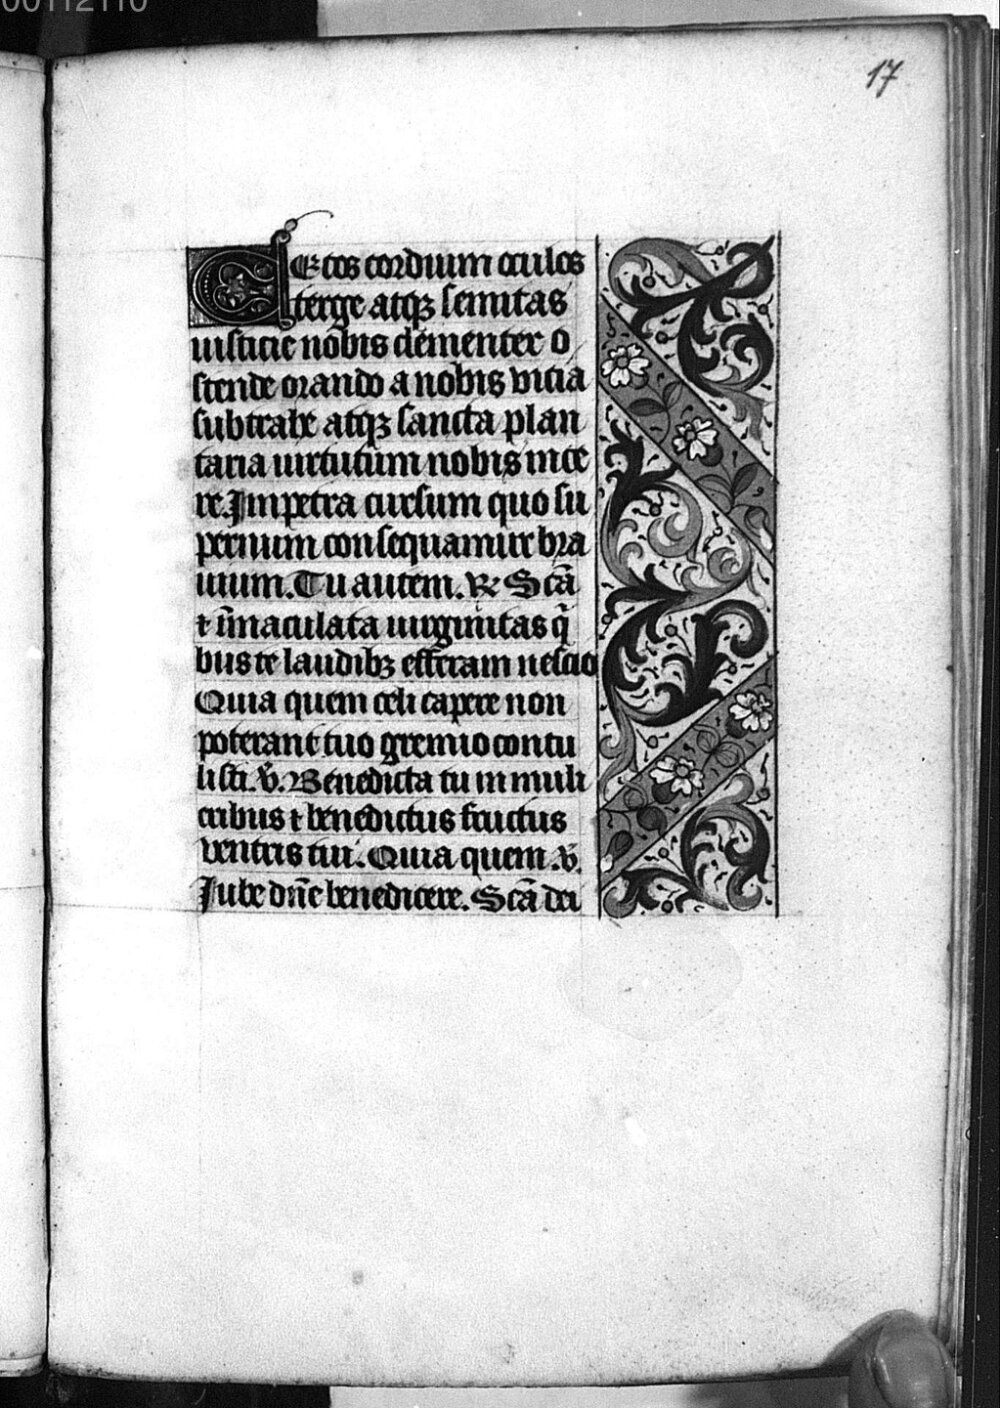 00112110
17
CEtos cordium oculos
terge atqꝫ semitas
iusticie nobis clementer o
stende orando a nobis vicia
subtrahe atqꝫ sancta plan
taria uirtutum nobis inse
re. Impetra cursum quo su
pernum consequamur bra
uium. Tu autem. ℟ Scā
⁊ īmaculata uirginitas q̄
bus te laudibꝫ efferam nescio
Quia quem celi capere non
poterant tuo gremio contu
listi. ℣. Benedicta tu in muli
eribus ⁊ benedictus fructus
ventris tui. Quia quem. ℣.
Jube dn̄e benedicere. Scā dei